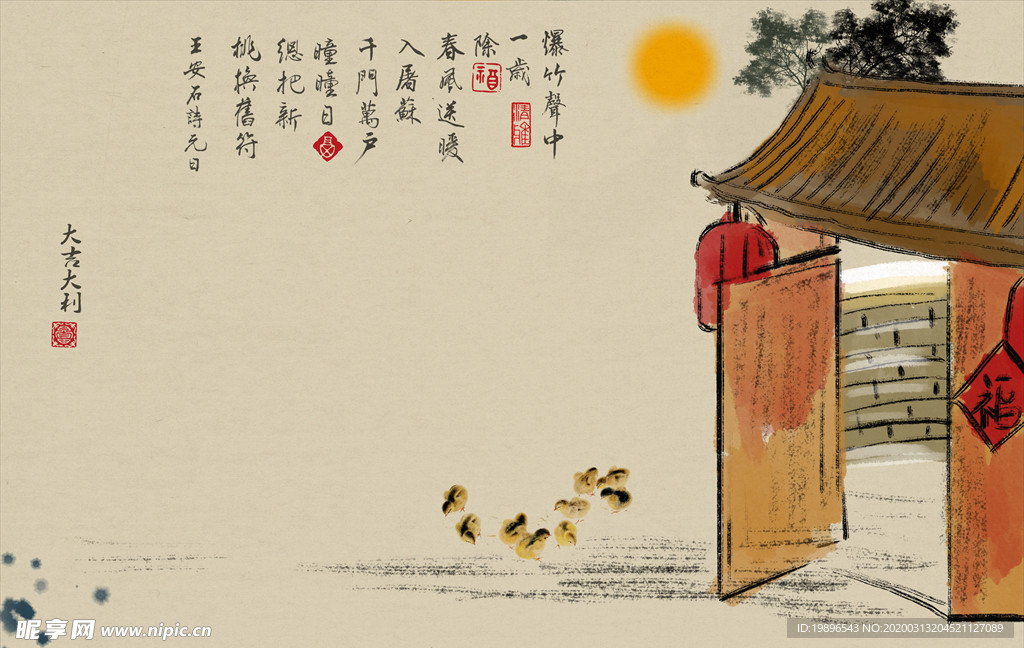 爆竹聲中
一歲
除
春風送暖
入屠蘇
千門萬戶
曈曈日
總把新
桃換舊符
王安石詩元日
大吉大利
福
昵享网 www.nipic.cn
ID:19896543 NO:20200313204521127089